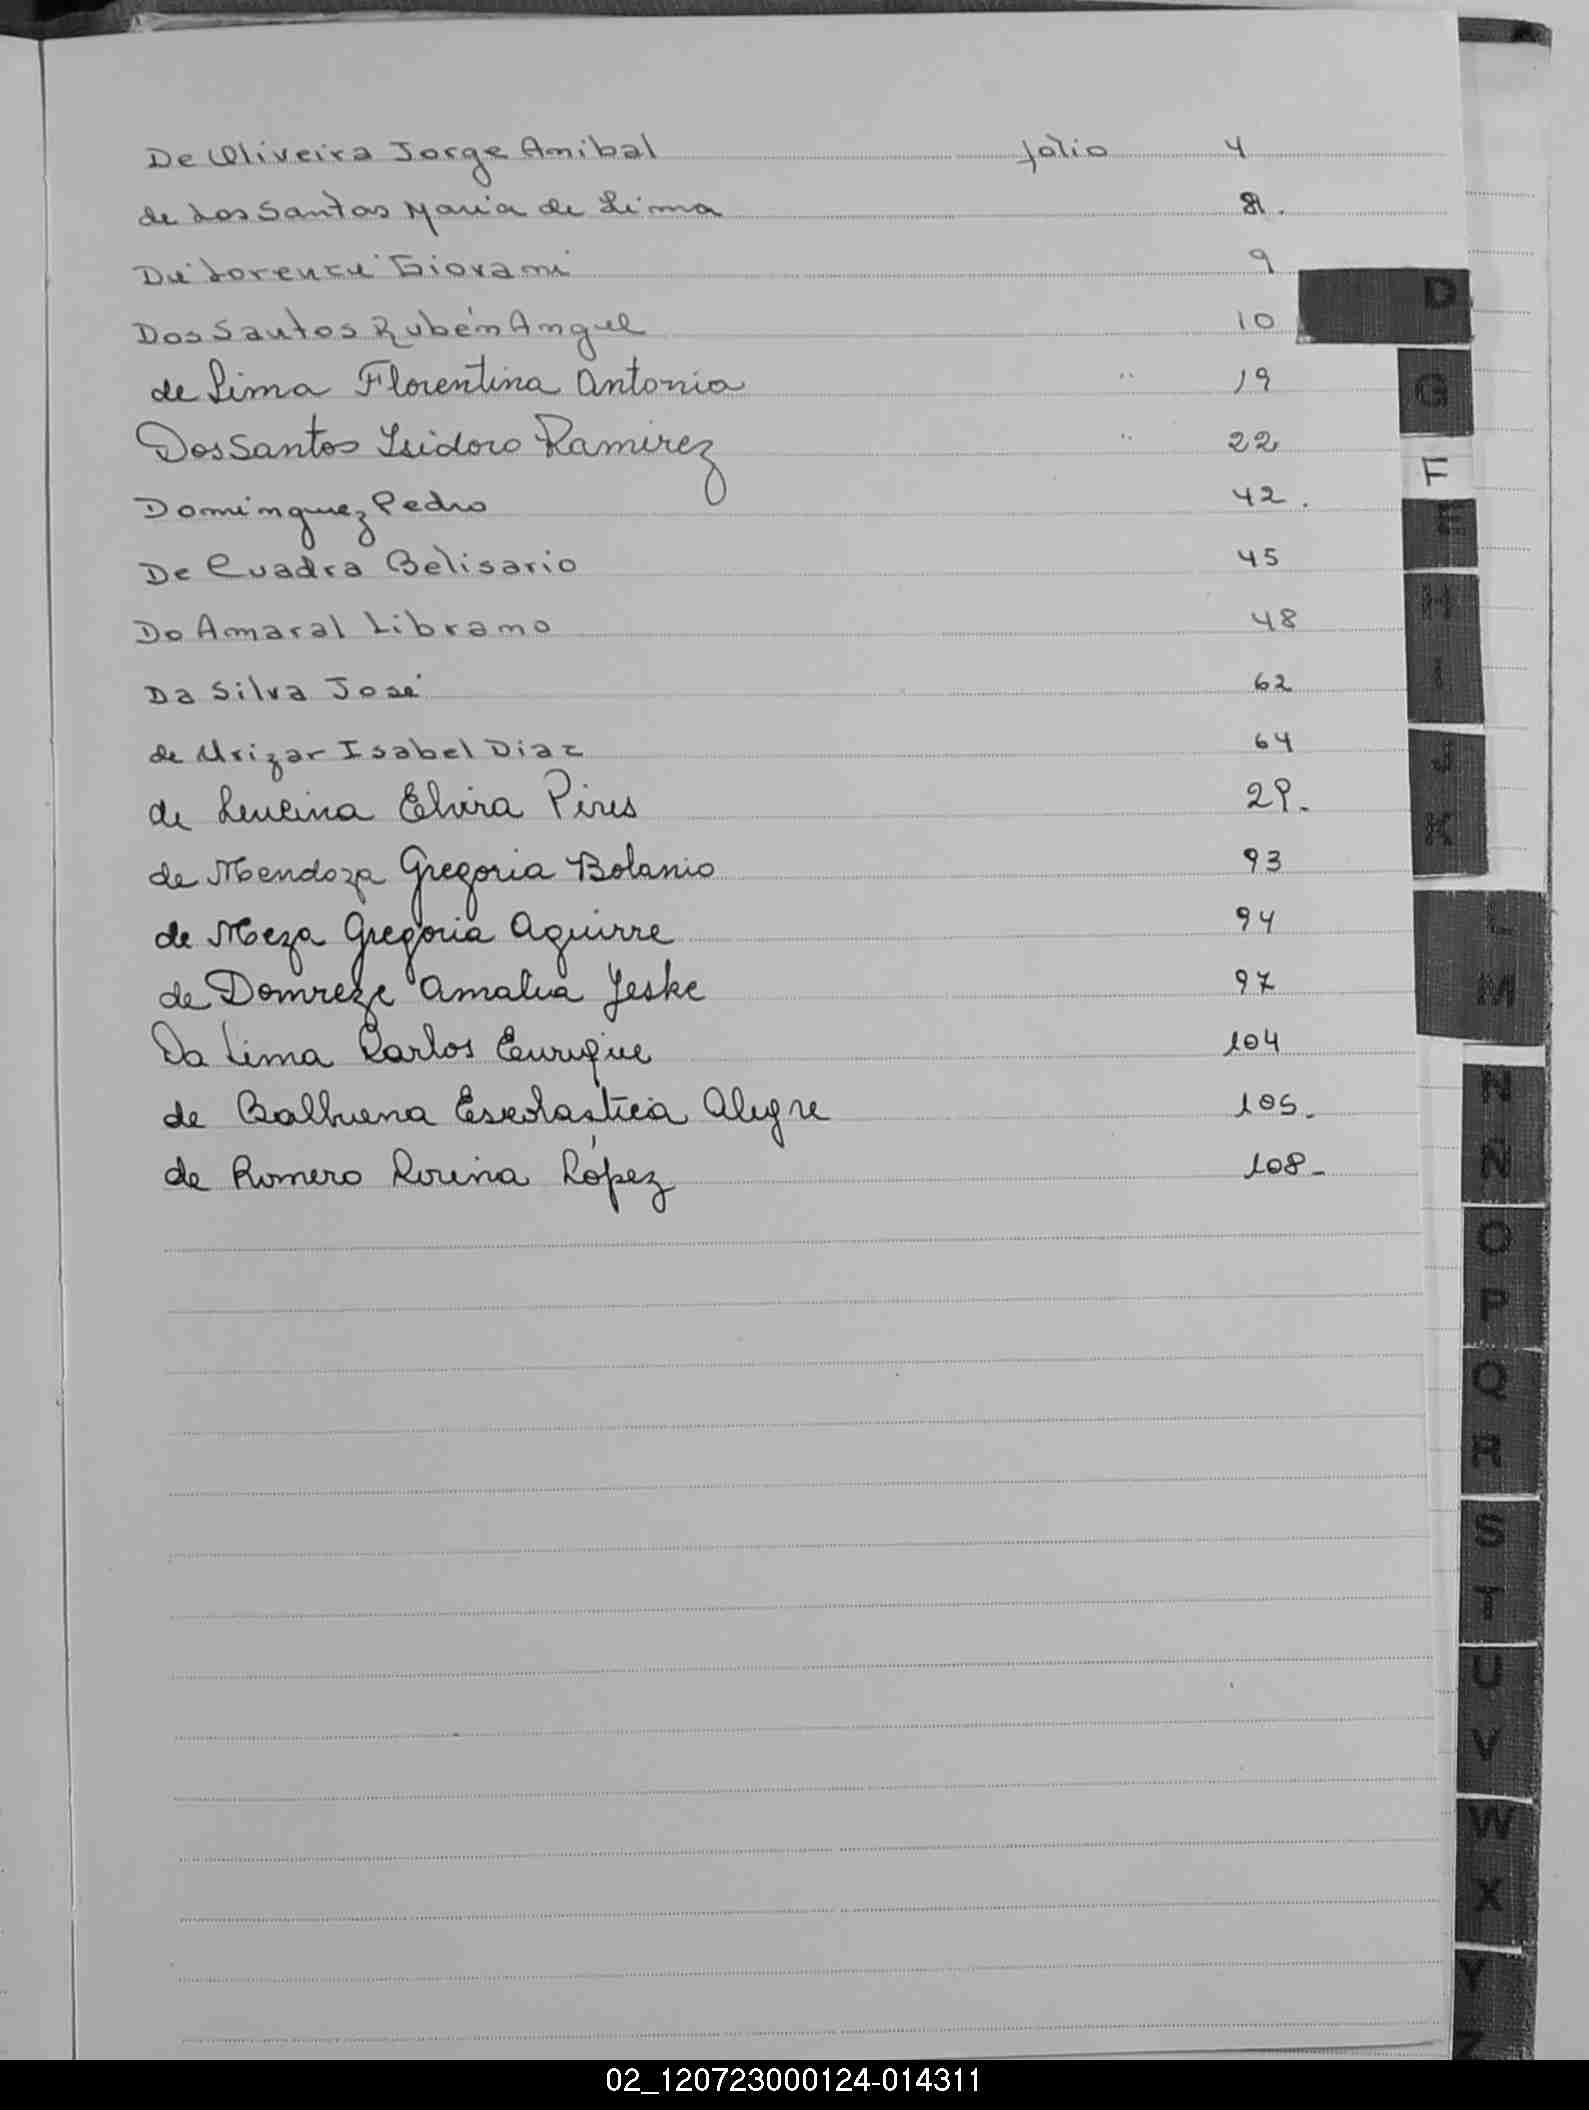 De Oliveira Jorge Anibal folio 4
de Dos Santos Maria de Lima 8
Di Lorenzi Giovami 9
Dos Santos Rubén Angel 10
de Lima Florentina Antonia " 19
Dos Santos Isidoro Ramirez " 22
Dominguez Pedro 42.
De Cuadra Belisario 45
Do Amaral Libramo 48
Da Silva José 62
de Urizar Isabel Diaz 64
de Elvira Pires 29.
de Mendoza Gregoria Bolanio 93
de Meza Gregoria Aguirre 94
de Amalia Jeske 97
Da Lima Carlos Enrique 104
de Balbuena Escolastica Alegre 105.
de Romero López 108-
D
G
F
E
H
I
J
K
L
M
N
N
O
P
Q
R
S
T
U
V
W
X
Y
Z
02_120723000124-014311